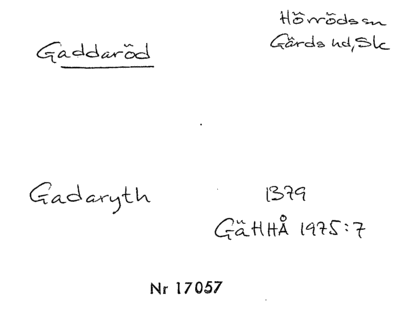 Hörrödssn
Gaddaröd
Gärds hd, Sk
Gadaryth 1379
GäHHÅ 1975:7
Nr 17057